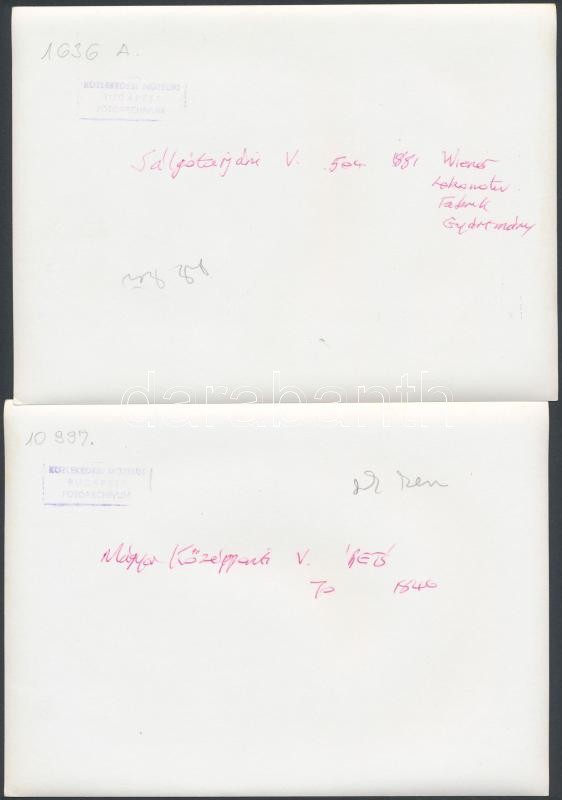 1636 A.
KÖZLEKEDÉSI MÚZEUM
BUDAPEST
FOTÓARCHIVUM
Salgótarjáni V. 504 1881 Wiener
Lokomotiv
Fabrik
Gyártmány
darabanth
10 997.
KÖZLEKEDÉSI MÚZEUM
BUDAPEST
FOTÓARCHIVUM
Magyar Középponti V.
70 1846